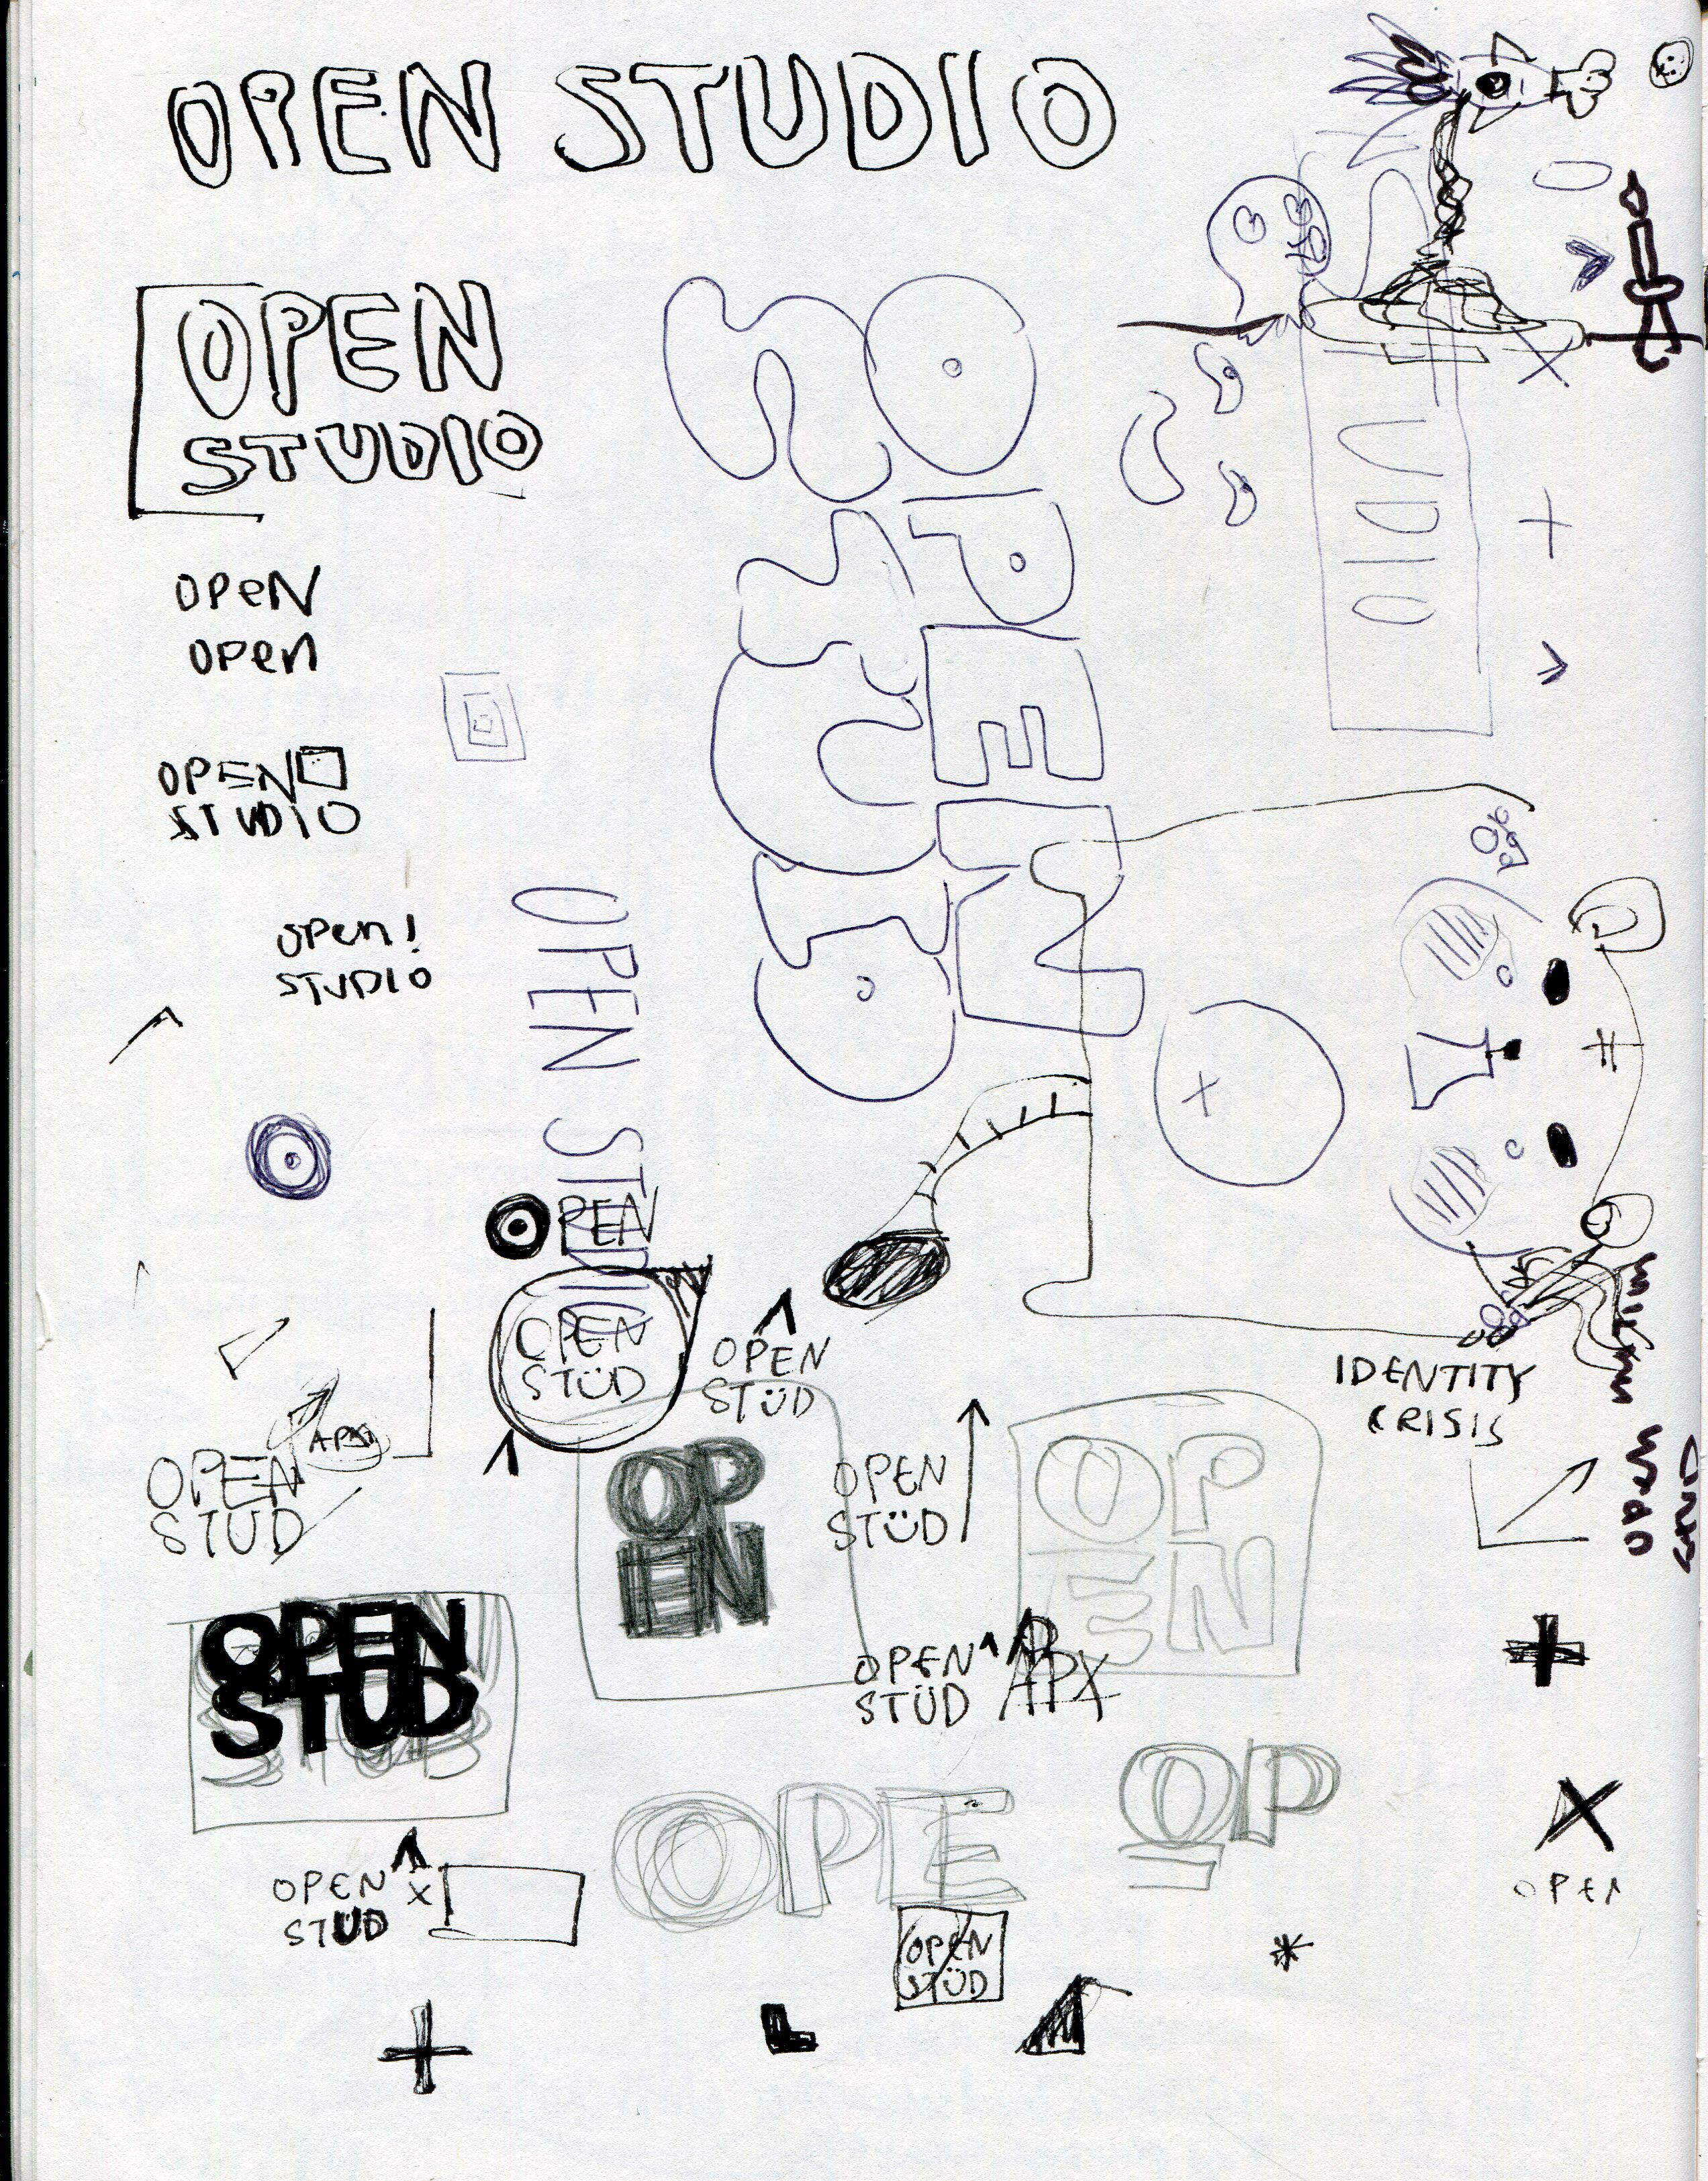 OPEN STUDIO
OPEN
STUDIO
OPeN
OPen
OPEN
STUDIO
OPen!
STUDIO
OPEN
STUDIO
OPEN STUDIO
OPEN
OPEN
STÜD
OPEN
STÜD
IDENTITY
CRISIS
OPEN
STUD
APX
OP
EN
OPEN
STÜD
OP
EN
OPEN
STUD
OPEN
STÜD
APX
OPE
OP
OPEN
STÜD
X
OPEN
STÜD
OPEN